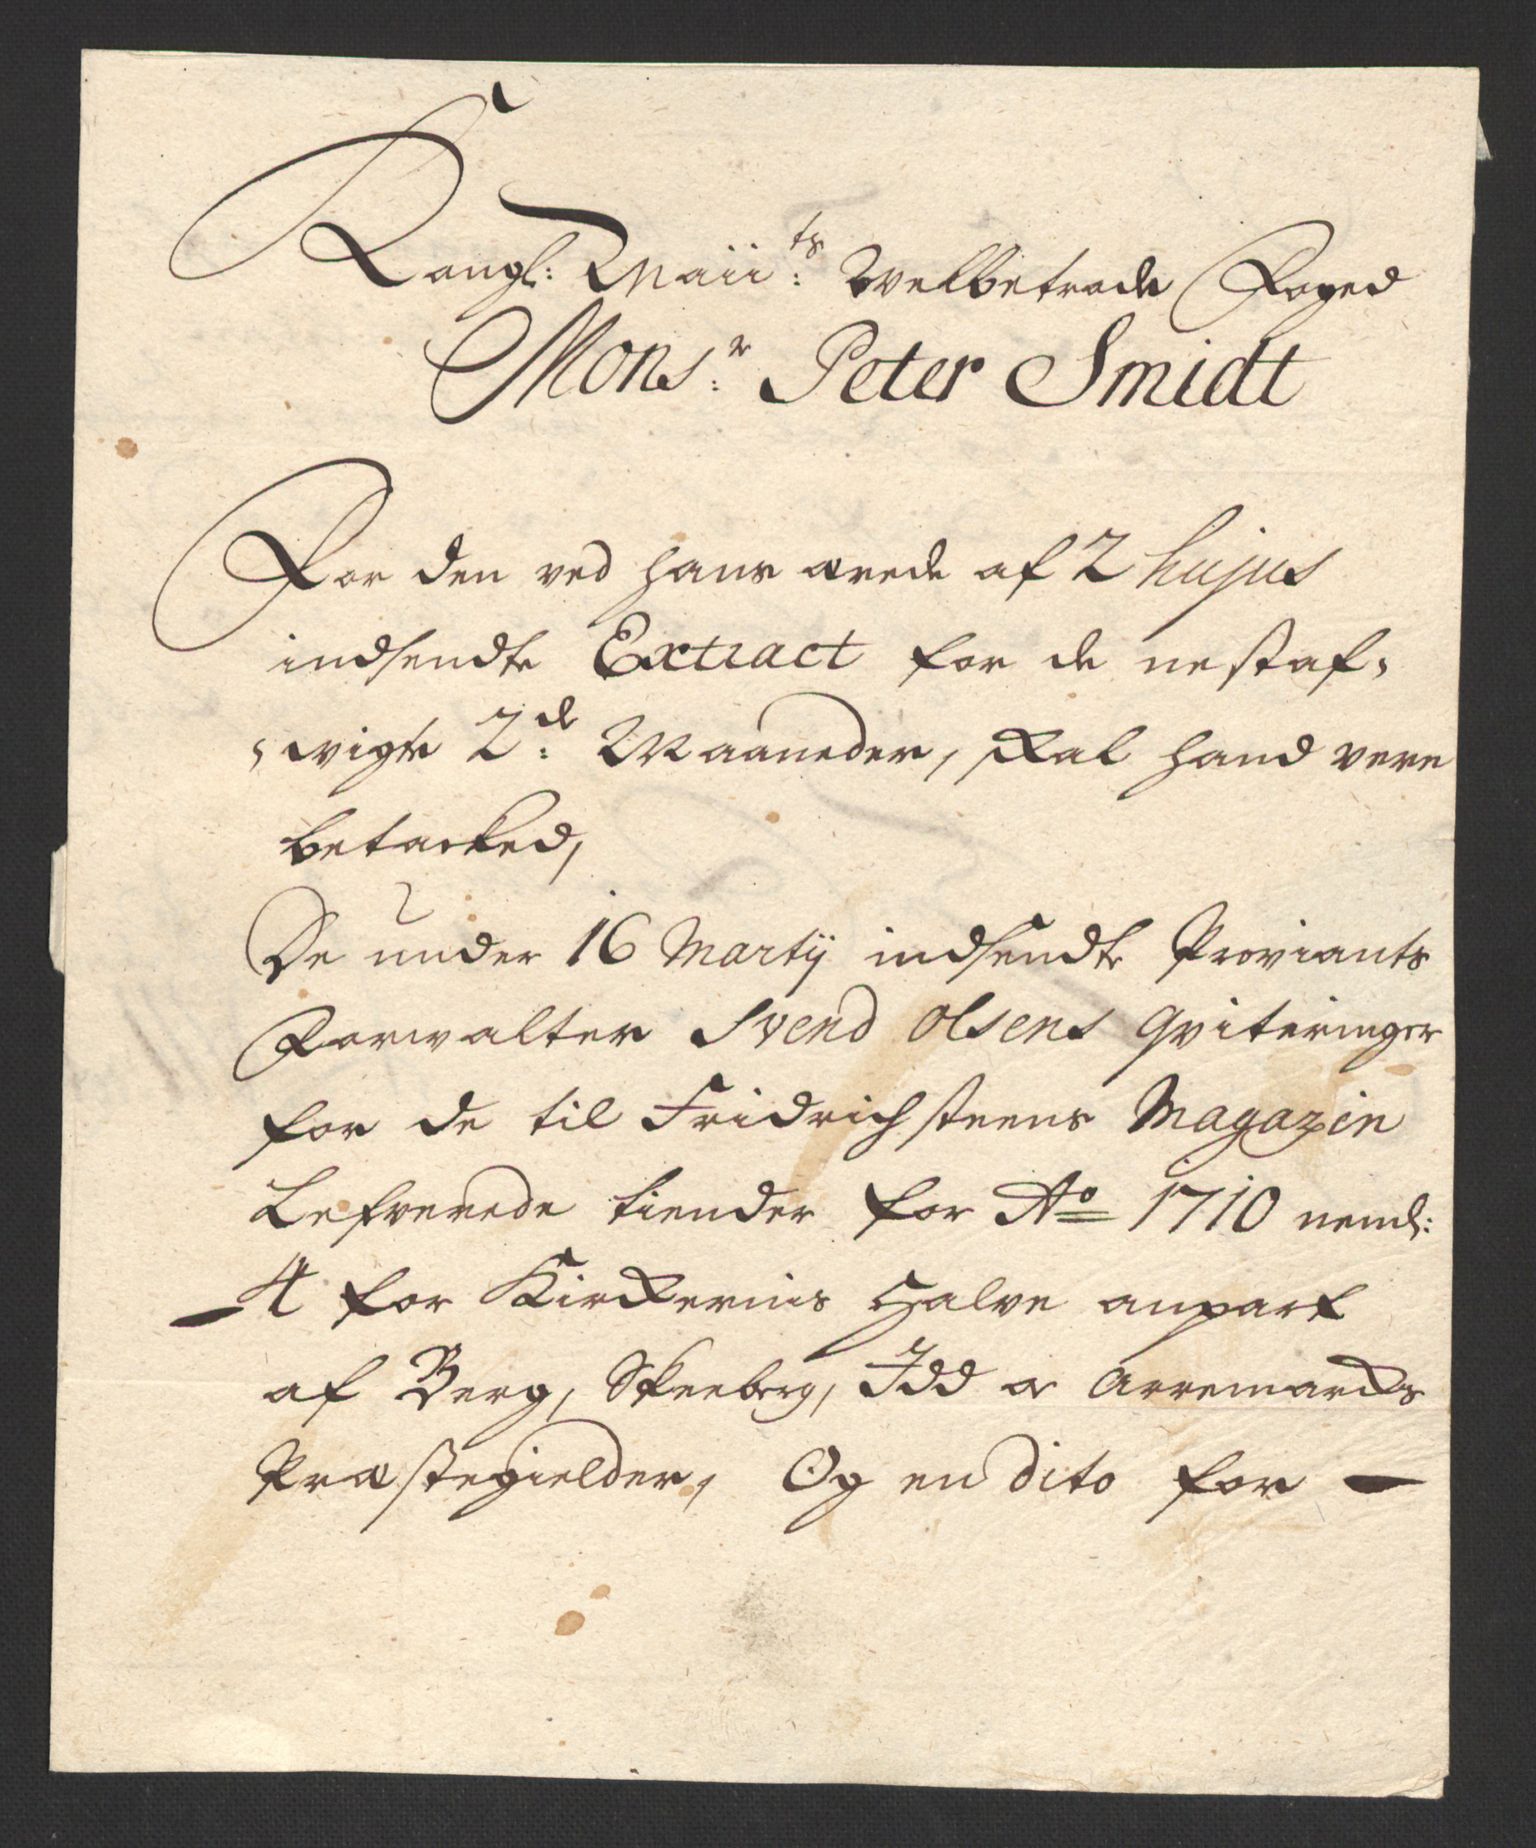 Kongl: Maii:ts Welbetrode Foged
Mons:r Peter Smidt
For den ved hans ærede af 2 hujus
indsendte Extract for de nestaf-
-wigte 2de: Maaneder, skal hand vere
betacked,
De under 16 Martij indsendte Proviants
Forwalter Svend Olsens Qviteringer
for de til Fridrichsteens Magazin
Lefverede tiender for Ao 1710 neml:
4 for Kirkernis Halve anpart
af Berg, Skeeberg, Idd oc Arremarks
Præstegielder, Og en dito for